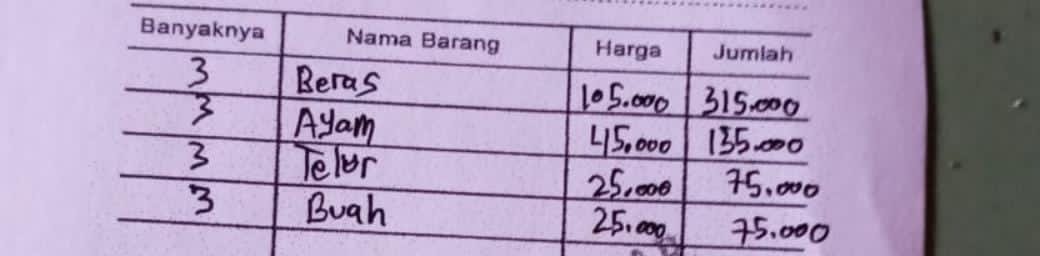 Banyaknya Nama Barang Harga Jumlah
3 Beras 105.000 315.000
3 Ayam 45.000 135.000
3 Telur 25.000 75.000
3 Buah 25.000 75.000